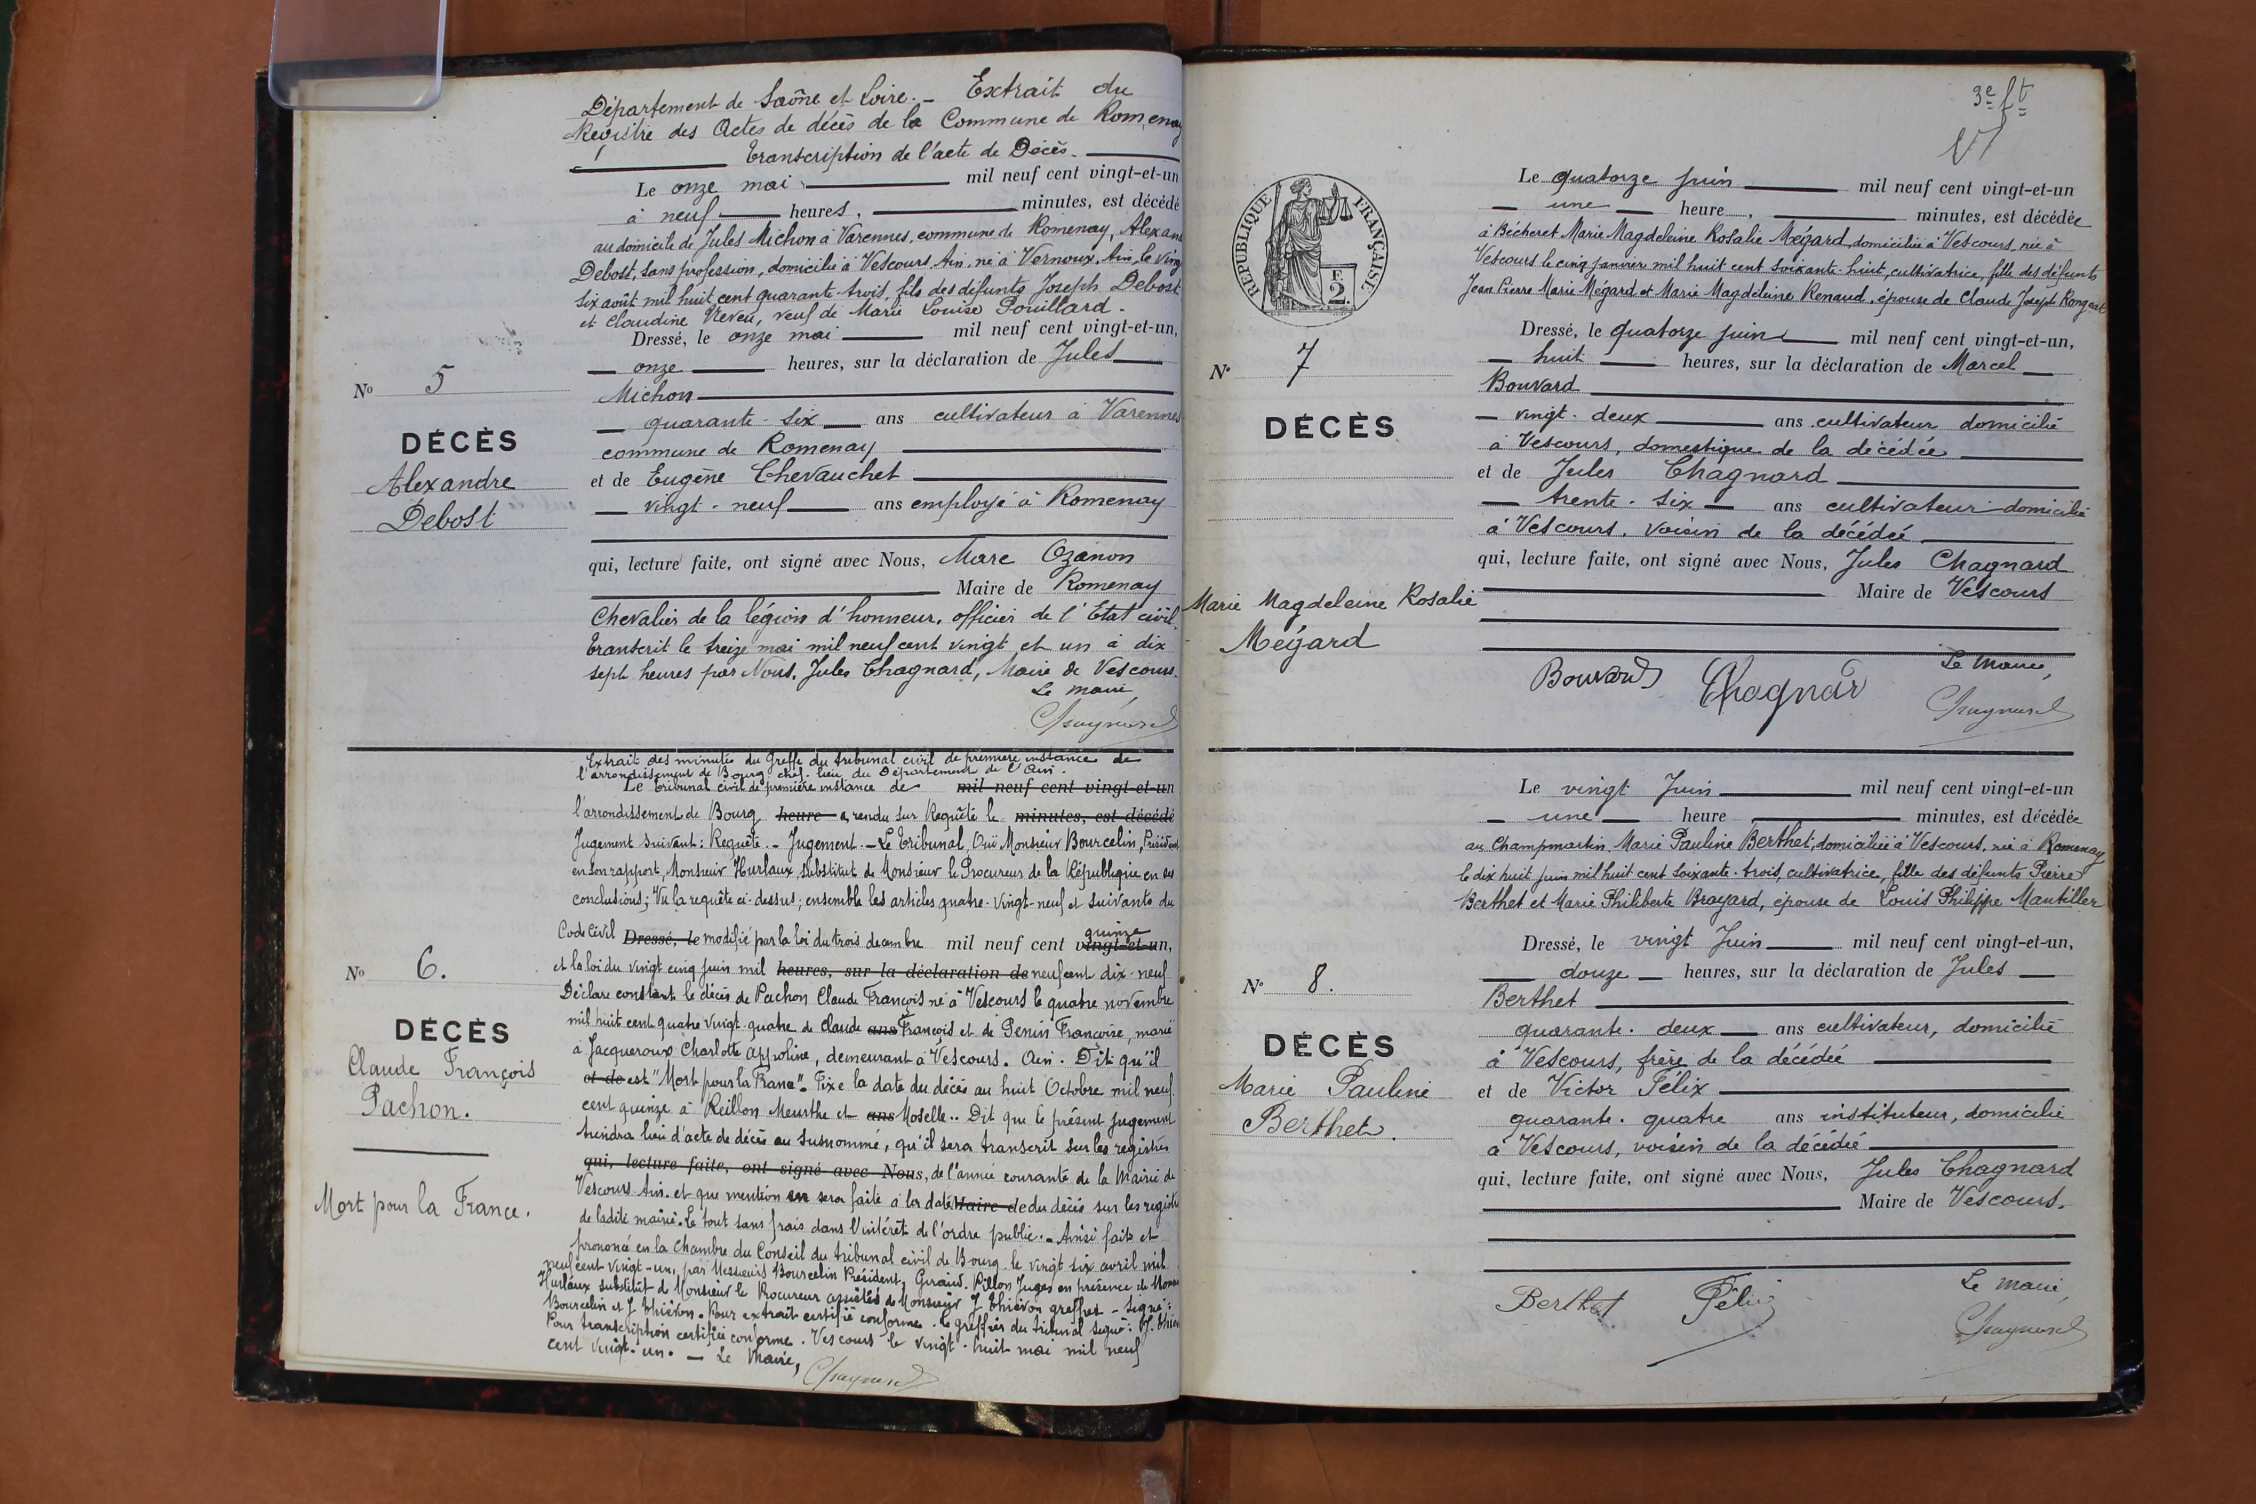 Département de Saône et Loire. - Extrait du
Registre des Actes de décès de la Commune de Romenay
Transcription de l'acte de Décès.
Le onze mai mil neuf cent vingt-et-un
à neuf heures, minutes, est décédé
au domicile de Jules Michon à Varennes, commune de Romenay, Alexan
Debost, sans profession, domicilié à Vescours, Ain, né à Vernoux, Ain, le ving
six août mil huit cent quarante-trois, fils des défunts Joseph Debost
et Claudine Neveu, veuf de Marie Louise Pouillard.
Dressé, le onze mai mil neuf cent vingt-et-un,
onze heures, sur la déclaration de Jules
Michon
quarante-six ans cultivateur à Varennes
commune de Romenay
et de Eugène Chevauchet
vingt-neuf ans employé à Romenay
qui, lecture faite, ont signé avec Nous, Marc Ozanon
Maire de Romenay
Chevalier de la légion d'honneur, officier de l'Etat civil.
Transcrit le treize mai mil neuf cent vingt et un à dix
sept heures par Nous, Jules Chagnard, Maire de Vescours.
Le maire,
Chagnard
No 5
DÉCÈS
Alexandre
Debost
Extrait des minutes du Greffe du tribunal civil de première instance de
l'arrondissement de Bourg chef-lieu du Département de l'Ain.
Le Tribunal civil de première instance de mil neuf cent vingt-et-un
l'arrondissement de Bourg heure a rendu sur Requête le minutes, est décédé
Jugement suivant: Requête. - Jugement. - Le Tribunal, Ouï Monsieur Bourcelin, Président
en son rapport, Monsieur Hurlaux, Substitut de Monsieur le Procureur de la République en ses
conclusions; Vu la requête ci-dessus; ensemble les articles quatre-vingt-neuf et suivants du
Code Civil Dressé, le modifié par la loi du trois décembre mil neuf cent vingt-et-un, quinze
et la loi du vingt cinq juin mil heures, sur la déclaration de neuf cent dix-neuf
Déclare constant le décès de Pachon Claude François né à Vescours le quatre novembre
mil huit cent quatre vingt-quatre de Claude ans François et de Genin Françoise, marié
à Jacqueroux Charlotte Appoline, demeurant à Vescours. Ain. Dit qu'il
et de est "Mort pour la France". Fixe la date du décès au huit Octobre mil neuf
cent quinze à Reillon Meurthe et ans Moselle.. Dit que le présent Jugement
tiendra lieu d'acte de décès au susnommé, qu'il sera transcrit sur les registres
qui, lecture faite, ont signé avec Nous, de l'année courante de la Mairie de
Vescours Ain. et que mention en sera faite à la date Maire de du décès sur les registres
de ladite mairie. Le tout sans frais dans l'intérêt de l'ordre public. - Ainsi fait et
prononcé en la Chambre du Conseil du tribunal civil de Bourg le vingt six avril mil
neuf cent vingt-un, par Messieurs Bourcelin Président, Giraud, Pillon Juges en présence de Mons
Hurlaux substitut de Monsieur le Procureur assistés de Monsieur J. Thiévon greffier - Signé:
Bourcelin et J. Thiévon. Pour extrait certifié conforme. Le greffier du tribunal signé: J. Thiev
Pour transcription certifiée conforme. Vescours le vingt-huit mai mil neuf
cent vingt-un. - Le Maire,
Chagnard
No 6.
DÉCÈS
Claude François
Pachon.
Mort pour la France.
3e ft
RÉPUBLIQUE FRANÇAISE
F.
2.
Le quatorze juin mil neuf cent vingt-et-un
une heure, minutes, est décédée
à Bécheret Marie Magdeleine Rosalie Mégard, domiciliée à Vescours, née à
Vescours le cinq janvier mil huit cent soixante-huit, cultivatrice, fille des défunts
Jean Pierre Marie Mégard et Marie Magdeleine Renaud, épouse de Claude Joseph Rongeat
Dressé, le quatorze juin mil neuf cent vingt-et-un,
huit heures, sur la déclaration de Marcel
Bouvard
vingt-deux ans cultivateur domicilié
à Vescours, domestique de la décédée
et de Jules Chagnard
trente-six ans cultivateur domicilié
à Vescours, voisin de la décédée
qui, lecture faite, ont signé avec Nous, Jules Chagnard
Maire de Vescours
Bouvard Chagnard Le Maire,
Chagnard
No 7
DÉCÈS
Marie Magdeleine Rosalie
Mégard
Le vingt Juin mil neuf cent vingt-et-un
une heure minutes, est décédée
au Champmartin Marie Pauline Berthet, domiciliée à Vescours, née à Romenay
le dix huit juin mil huit cent soixante-trois, cultivatrice, fille des défunts Pierre
Berthet et Marie Philiberte Brayard, épouse de Louis Philippe Mantiller
Dressé, le vingt Juin mil neuf cent vingt-et-un,
douze heures, sur la déclaration de Jules
Berthet
quarante-deux ans cultivateur, domicilié
à Vescours, frère de la décédée
et de Victor Félix
quarante-quatre ans instituteur, domicilié
à Vescours, voisin de la décédée
qui, lecture faite, ont signé avec Nous, Jules Chagnard
Maire de Vescours.
Berthet Félix Le maire,
Chagnard
No 8.
DÉCÈS
Marie Pauline
Berthet.